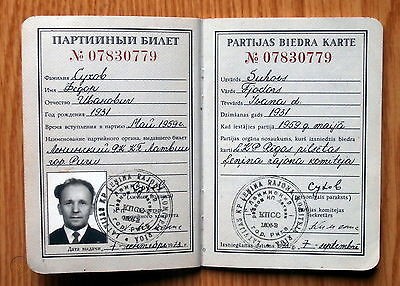 ПАРТИЙНЫЙ БИЛЕТ
№ 07830779
Фамилия Сухов
Имя Фёдор
Отчество Иванович
Год рождения 1931
Время вступления в партию Май 1959 г.
Наименование партийного органа, выдавшего билет
Ленинский РК КП Латвии
гор. Риги
Дата выдачи 7 сентября
PARTIJAS BIEDRA KARTE
№ 07830779
Uzvārds Suhovs
Vārds Fjodors
Tēvvārds Ivana d.
Dzimšanas gads 1931
Kad iestājies partijā 1959. g. maijā
Partijas orgāna nosaukums, kurš izsniedzis biedra
karti LKP Rīgas pilsētas
Ļeņina rajona komiteja
Сухов
Partijas komitejas
sekretārs
КПСС
Izsniegšanas datums 7. septembrī